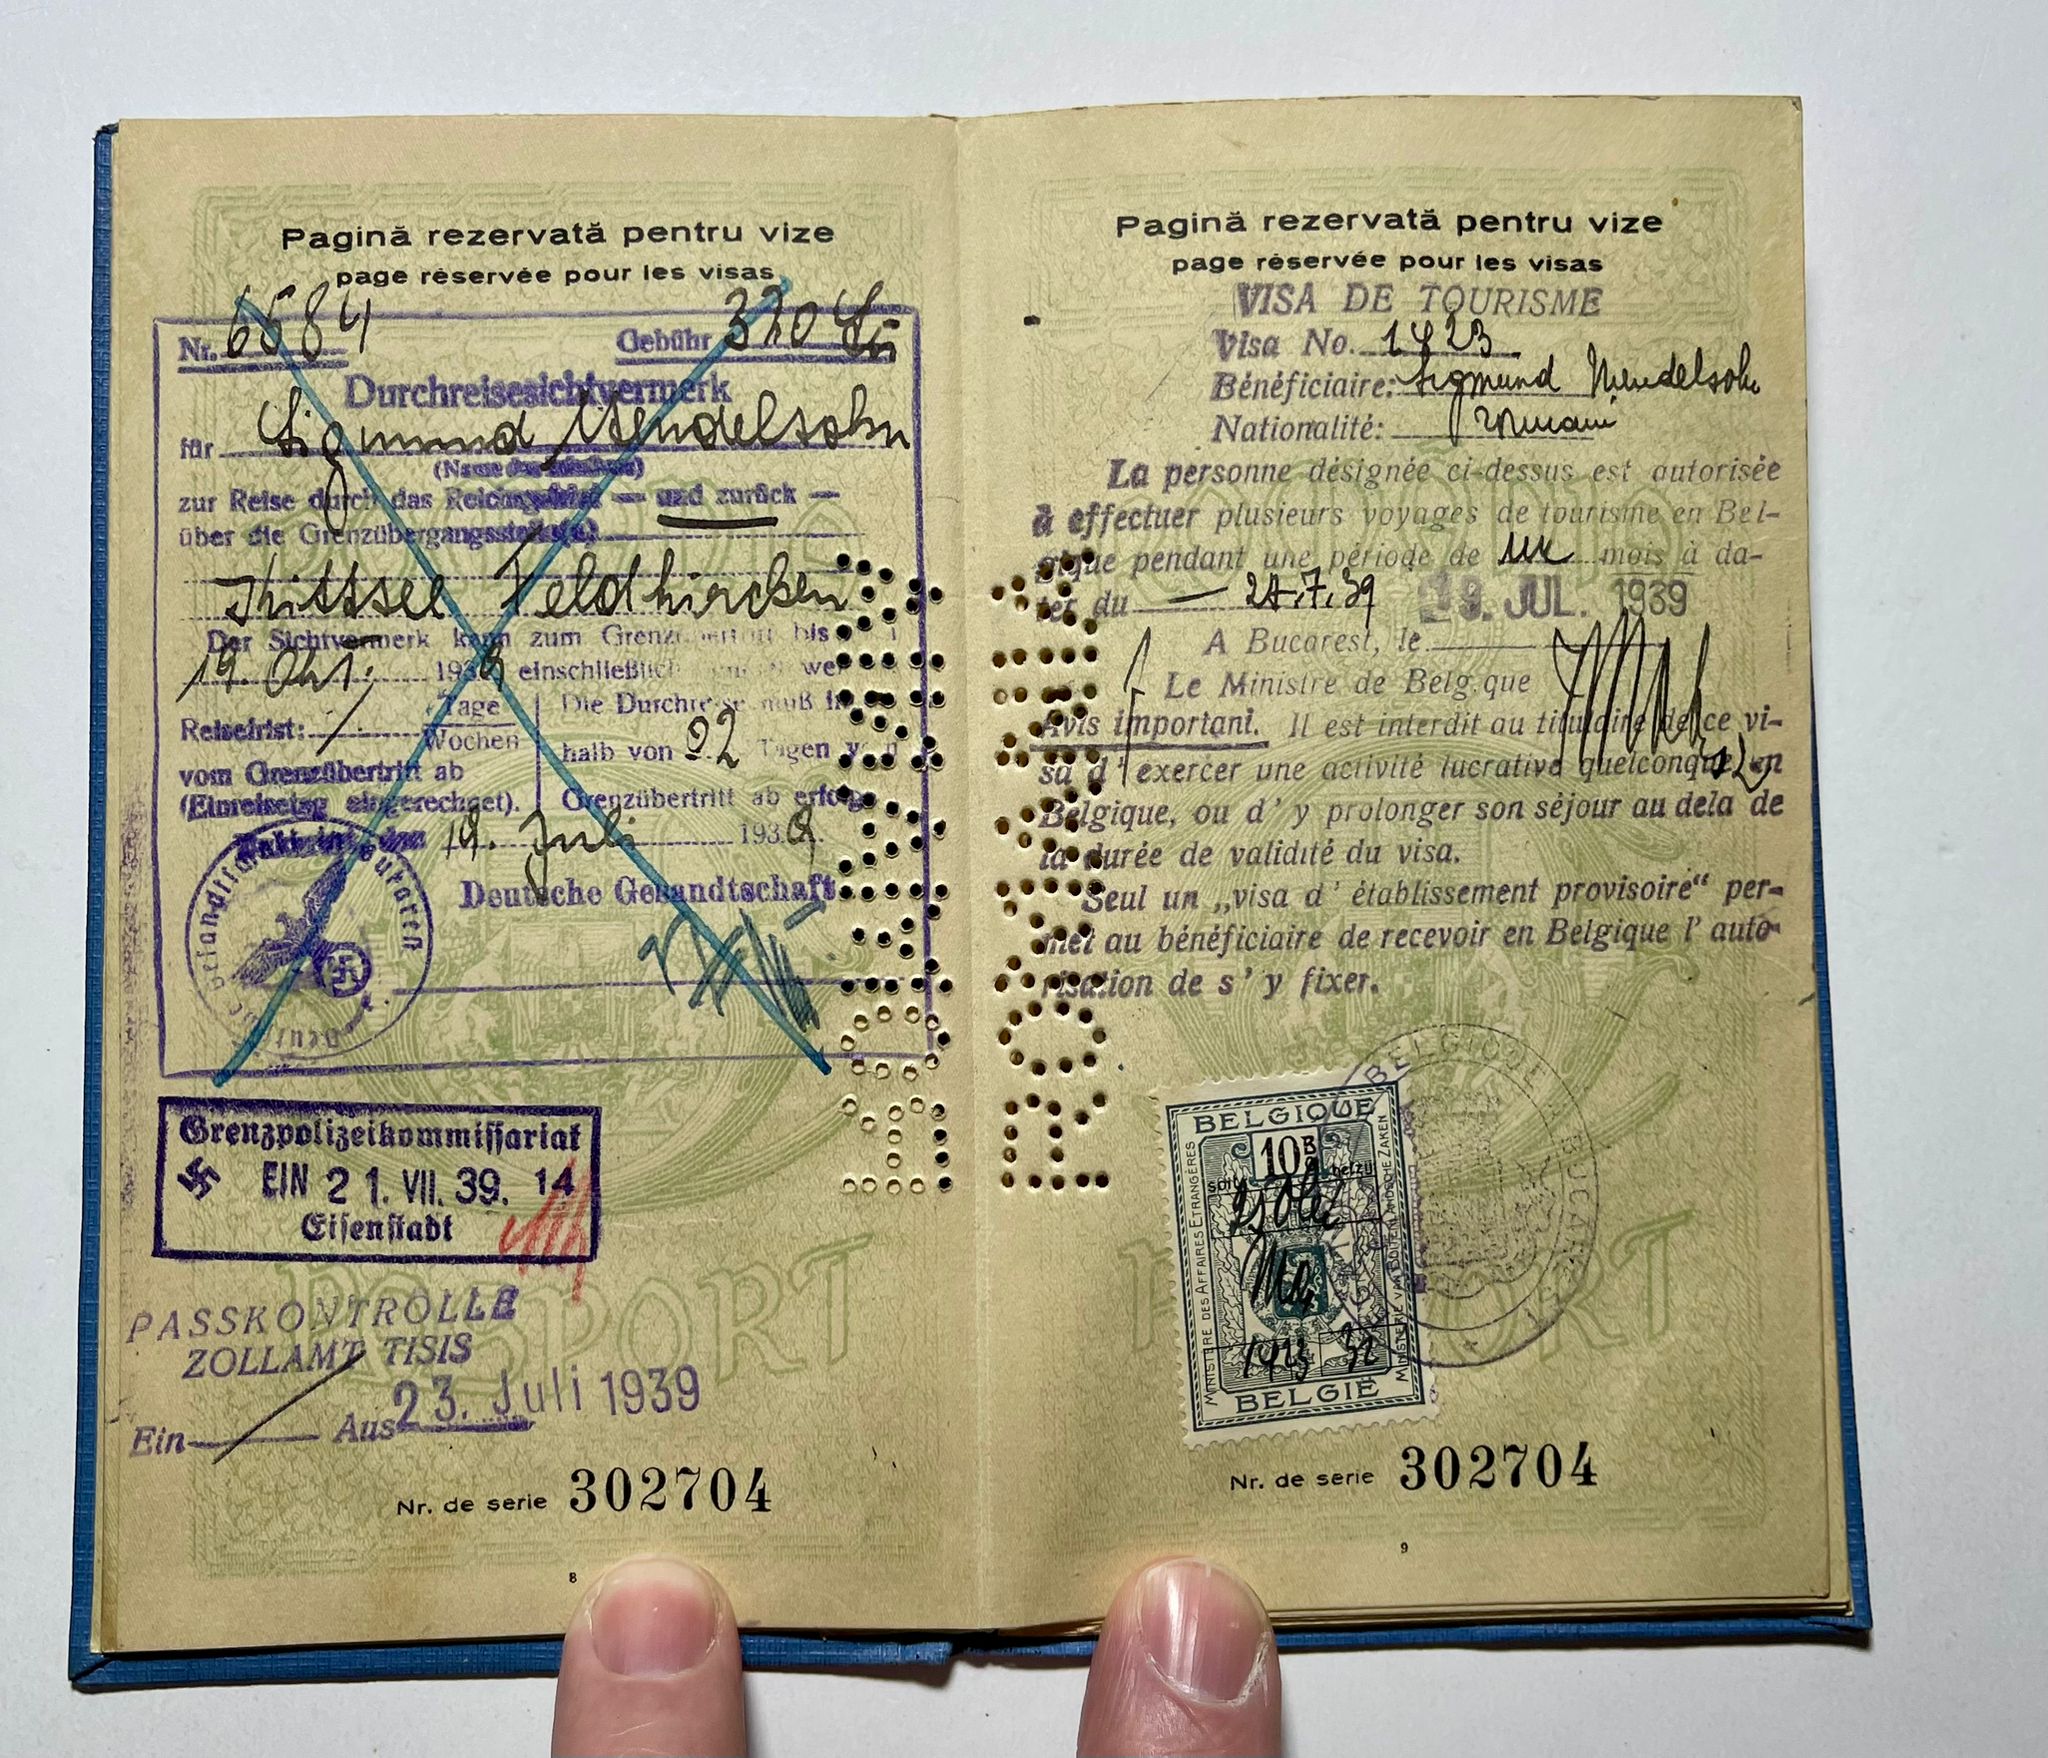 Pagină rezervată pentru vize
page réservée pour les visas
Nr. 6584 Gebühr 320 Lei
Durchreisesichtvermerk
für Sigmund Mendelsohn
(Name des
zur Reise durch das Reichsgebiet — und zurück —
über die Grenzübergangsstelle(n)
Kittsee Feldkirchen
Der Sichtvermerk kann zum Grenzübertritt bis
19. Okt. 1939 einschließlich
Reisefrist: Tage
Wochen
vom Grenzübertritt ab
(Einreisetag eingerechnet).
Die Durchreise muß in
halb von 02 Tagen
Grenzübertritt ab erfolg
den 19. Juli 1939.
Deutsche Gesandtschaft
Grenzpolizeikommissariat
EIN 21. VII. 39. 14
Eisenstadt
PASSKONTROLLE
ZOLLAMT TISIS
Ein Aus 23. Juli 1939
PASPORT
Nr. de serie 302704
8
Pagină rezervată pentru vize
page réservée pour les visas
VISA DE TOURISME
Visa No. 1423
Bénéficiaire: Sigmund Mendelsohn
Nationalité:
La personne désignée ci-dessus est autorisée
à effectuer plusieurs voyages de tourisme en Bel-
gique pendant une période de un mois à da-
ter du — 27.7.39 29. JUL. 1939
A Bucarest, le
Le Ministre de Belg.que
Avis important. Il est interdit au titulaire de ce vi-
sa d'exercer une activité lucrative quelconque en
Belgique, ou d'y prolonger son séjour au dela de
la durée de validité du visa.
Seul un „visa d'établissement provisoire“ per-
met au bénéficiaire de recevoir en Belgique l'auto-
risation de s'y fixer.
BELGIQUE
10
MINISTÈRE DES AFFAIRES ETRANGÈRES
1423 32
BELGIË
BELGIQUE BUCAREST
Nr. de serie 302704
9